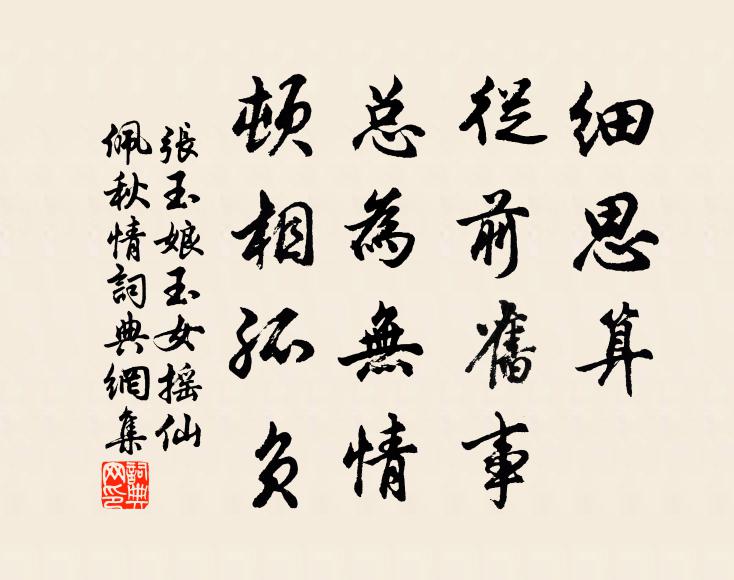 细思算
從前舊事
总為無情
頓相孤负
張玉娘玉女摇仙
佩秋情詞典網集
詞典网印